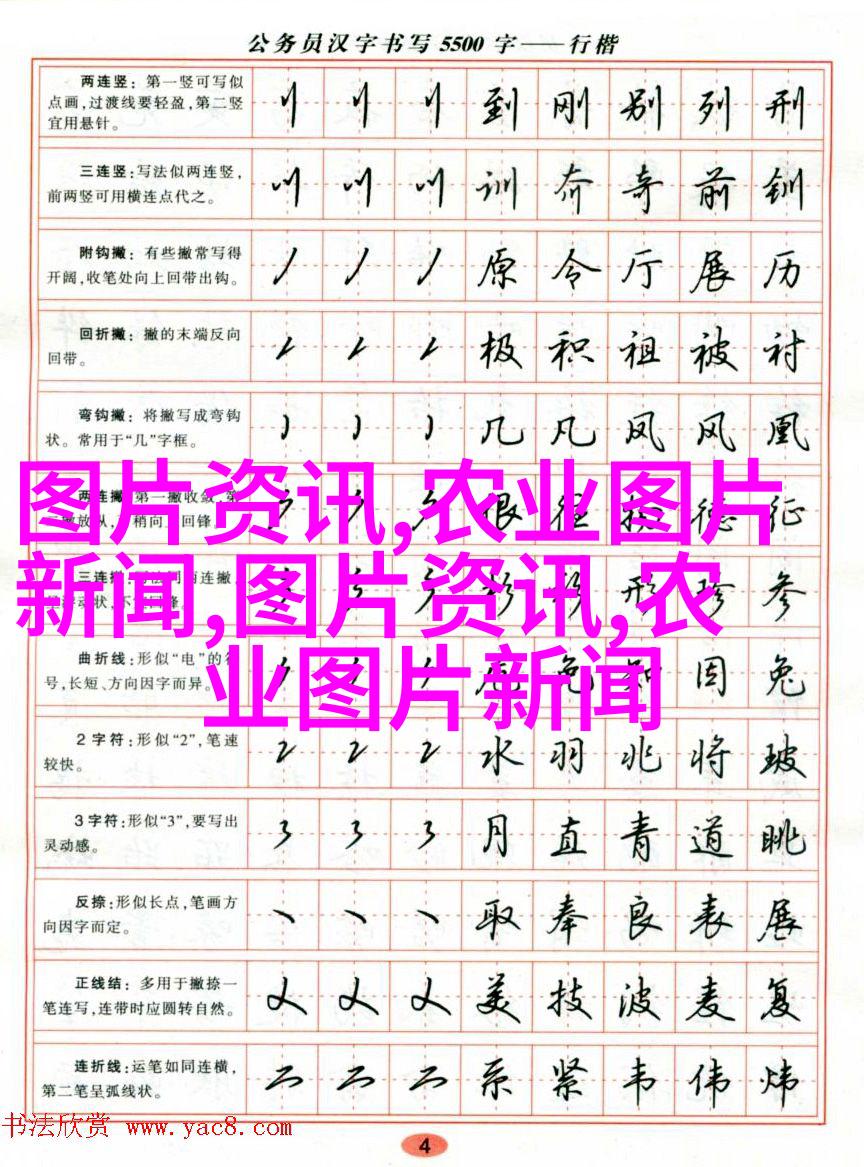 公务员汉字书写5500字——行楷
两连竖：第一竖可写似
点画,过渡线要轻盈,第二竖
宜用悬针。
到 刚 别 列 刑
三连竖:写法似两连竖,
前两竖可用横连点代之。
训 夼 奇 前 钏
附钩撇：有些撇常写得
开阔,收笔处向上回带出钩。
原 令 厅 展 历
回折撇：撇的末端反向
回带。
极 积 祖 被 衬
弯钩撇：将撇写成弯钩
状。常用于“几”字框。
几 凡 凤 风 凰
图片资讯,农业图片
新闻,图片资讯,农
业图片新闻
两连撇 第一撇收敛
稍向 回锋
很 德 征
三连
两连撇
形 珍 参
曲折线:形似“电”的
号,长短、方向因字而异。
因 兔
2字符:形似“2”,笔速
较快。
2 2 2 水 羽 兆 将 玻
3字符:形似“3”,要写出
灵动感。
3 3 3 月 直 青 道 眺
反捺:形似长点,笔画方
向因字而定。
取 奉 良 表 展
正线结：多用于撇捺一
笔连写,连带时应圆转自然。
美 技 波 麦 复
连折线:运笔如同连横,
第二笔呈弧线状。
系 紧 韦 伟 炜
书法欣赏 www.yac8.com
4